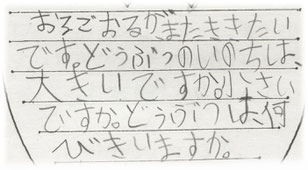 おろごおるがまたききたい
です。どうぶつのいのちは、
大きいですか。小さい
ですか。どうぶつは、何
びきいますか。